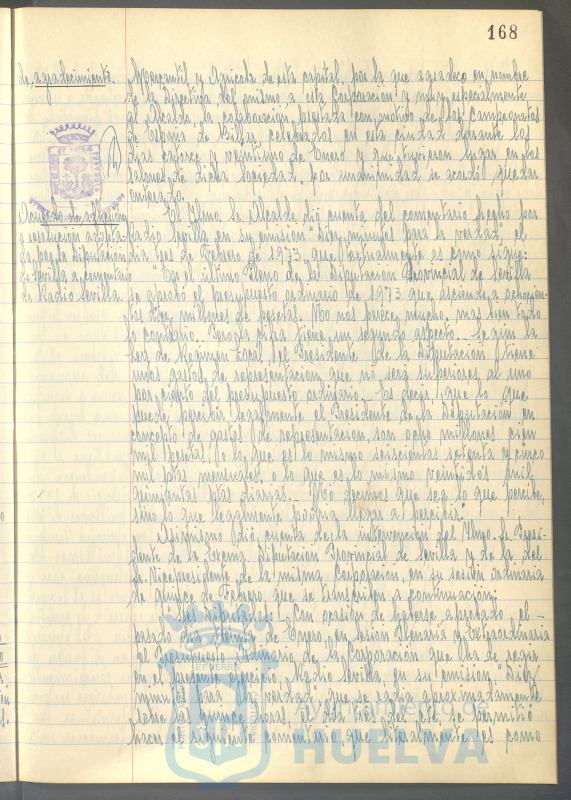 168
de agradecimiento.
Mercantil y Agrícola de esta capital, por la que agradece en nombre
de la Directiva del mismo a esta Corporación y muy especialmente
al Alcalde, la colaboración prestada con motivo de los Campeonatos
de España de Billar celebrados en esta ciudad durante los
días catorce y veintiuno de Enero y que tuvieron lugar en los
salones de dicha Sociedad, por unanimidad se acordó quedar
enterado.
Acuerdo de adhesión
a resolución adopta-
da por la Diputación
de Sevilla a comentario
de Radio Sevilla.
El Iltmo. Sr. Alcalde dió cuenta del comentario hecho por
Radio Sevilla en su emisión "Diez minutos para la verdad", el
día tres de Febrero de 1973, que textualmente es como sigue:
"En el último Pleno de la Diputación Provincial de Sevilla
se aprobó el presupuesto ordinario de 1973 que asciende a ochocien-
tos diez millones de pesetas. No nos parece mucho, mas bien todo
lo contrario. Pero la cifra tiene un segundo aspecto. Según la
Ley de Régimen Local, el Presidente de la Diputación tiene
unos gastos de representación que no será superiores al uno
por ciento del presupuesto ordinario. Es decir, que lo que
puede percibir legalmente el Presidente de la Diputación en
concepto de gastos de representación son ocho millones cien
mil pesetas, o lo que es lo mismo seiscientas setenta y cinco
mil ptas mensuales, o lo que es lo mismo veintidós mil
quinientas ptas diarias. No decimos que sea lo que percibe,
sino lo que legalmente podría llegar a percibir."
Asimismo dió cuenta de la intervención del Iltmo. Sr. Presi-
dente de la Excma. Diputación Provincial de Sevilla y de la del
Sr. Vicepresidente de la misma Corporación, en su sesión ordinaria
de quince de Febrero, que se transcriben a continuación:
Sres. Diputados: Con ocasión de haberse aprobado el
pasado de Enero, en sesión Plenaria y Extraordinaria
el Presupuesto ordinario de la Corporación que ha de regir
en el presente ejercicio, Radio Sevilla, en su emisión, "Diez
minutos para la verdad", que se radia aproximadamente
sobre las quince horas, el día tres del cte. se permitió
hacer el siguiente comentario, que literalmente es como
Ayuntamiento de
HUELVA